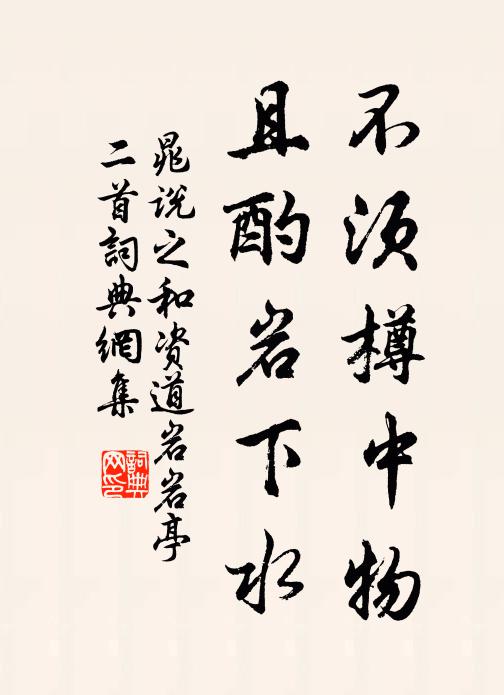 不須樽中物
且酌岩下水
晁說之和資道岩岩亭
二首詞典網集
詞典
网印